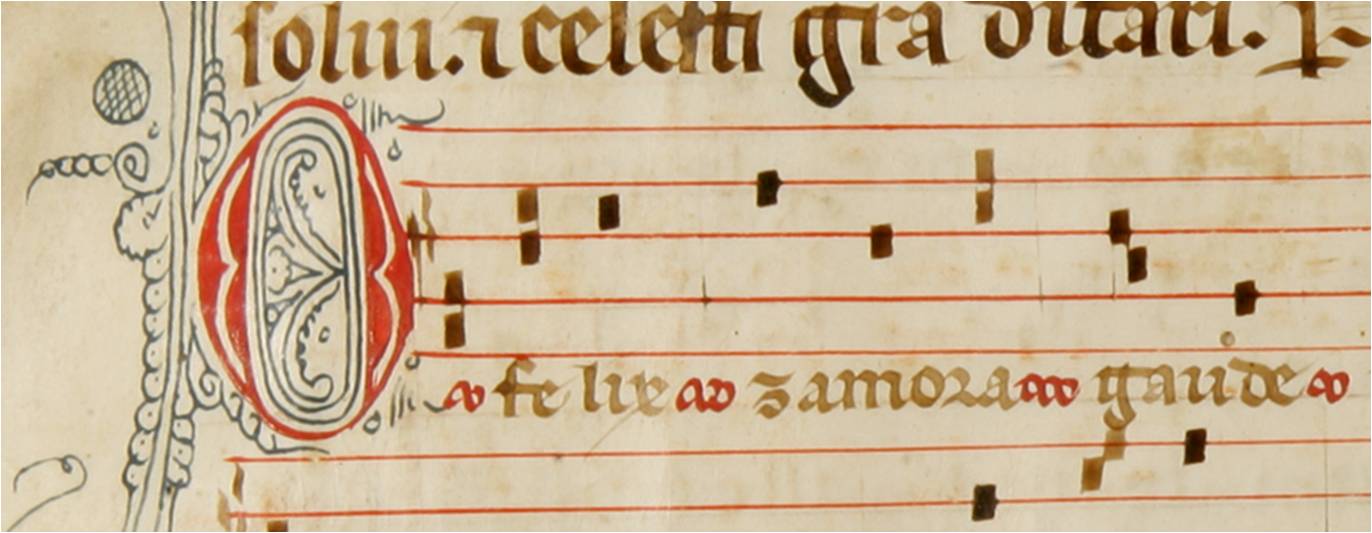 soluí. ⁊ celesti gr̃a ditari. P̱
O felix zamora gaude